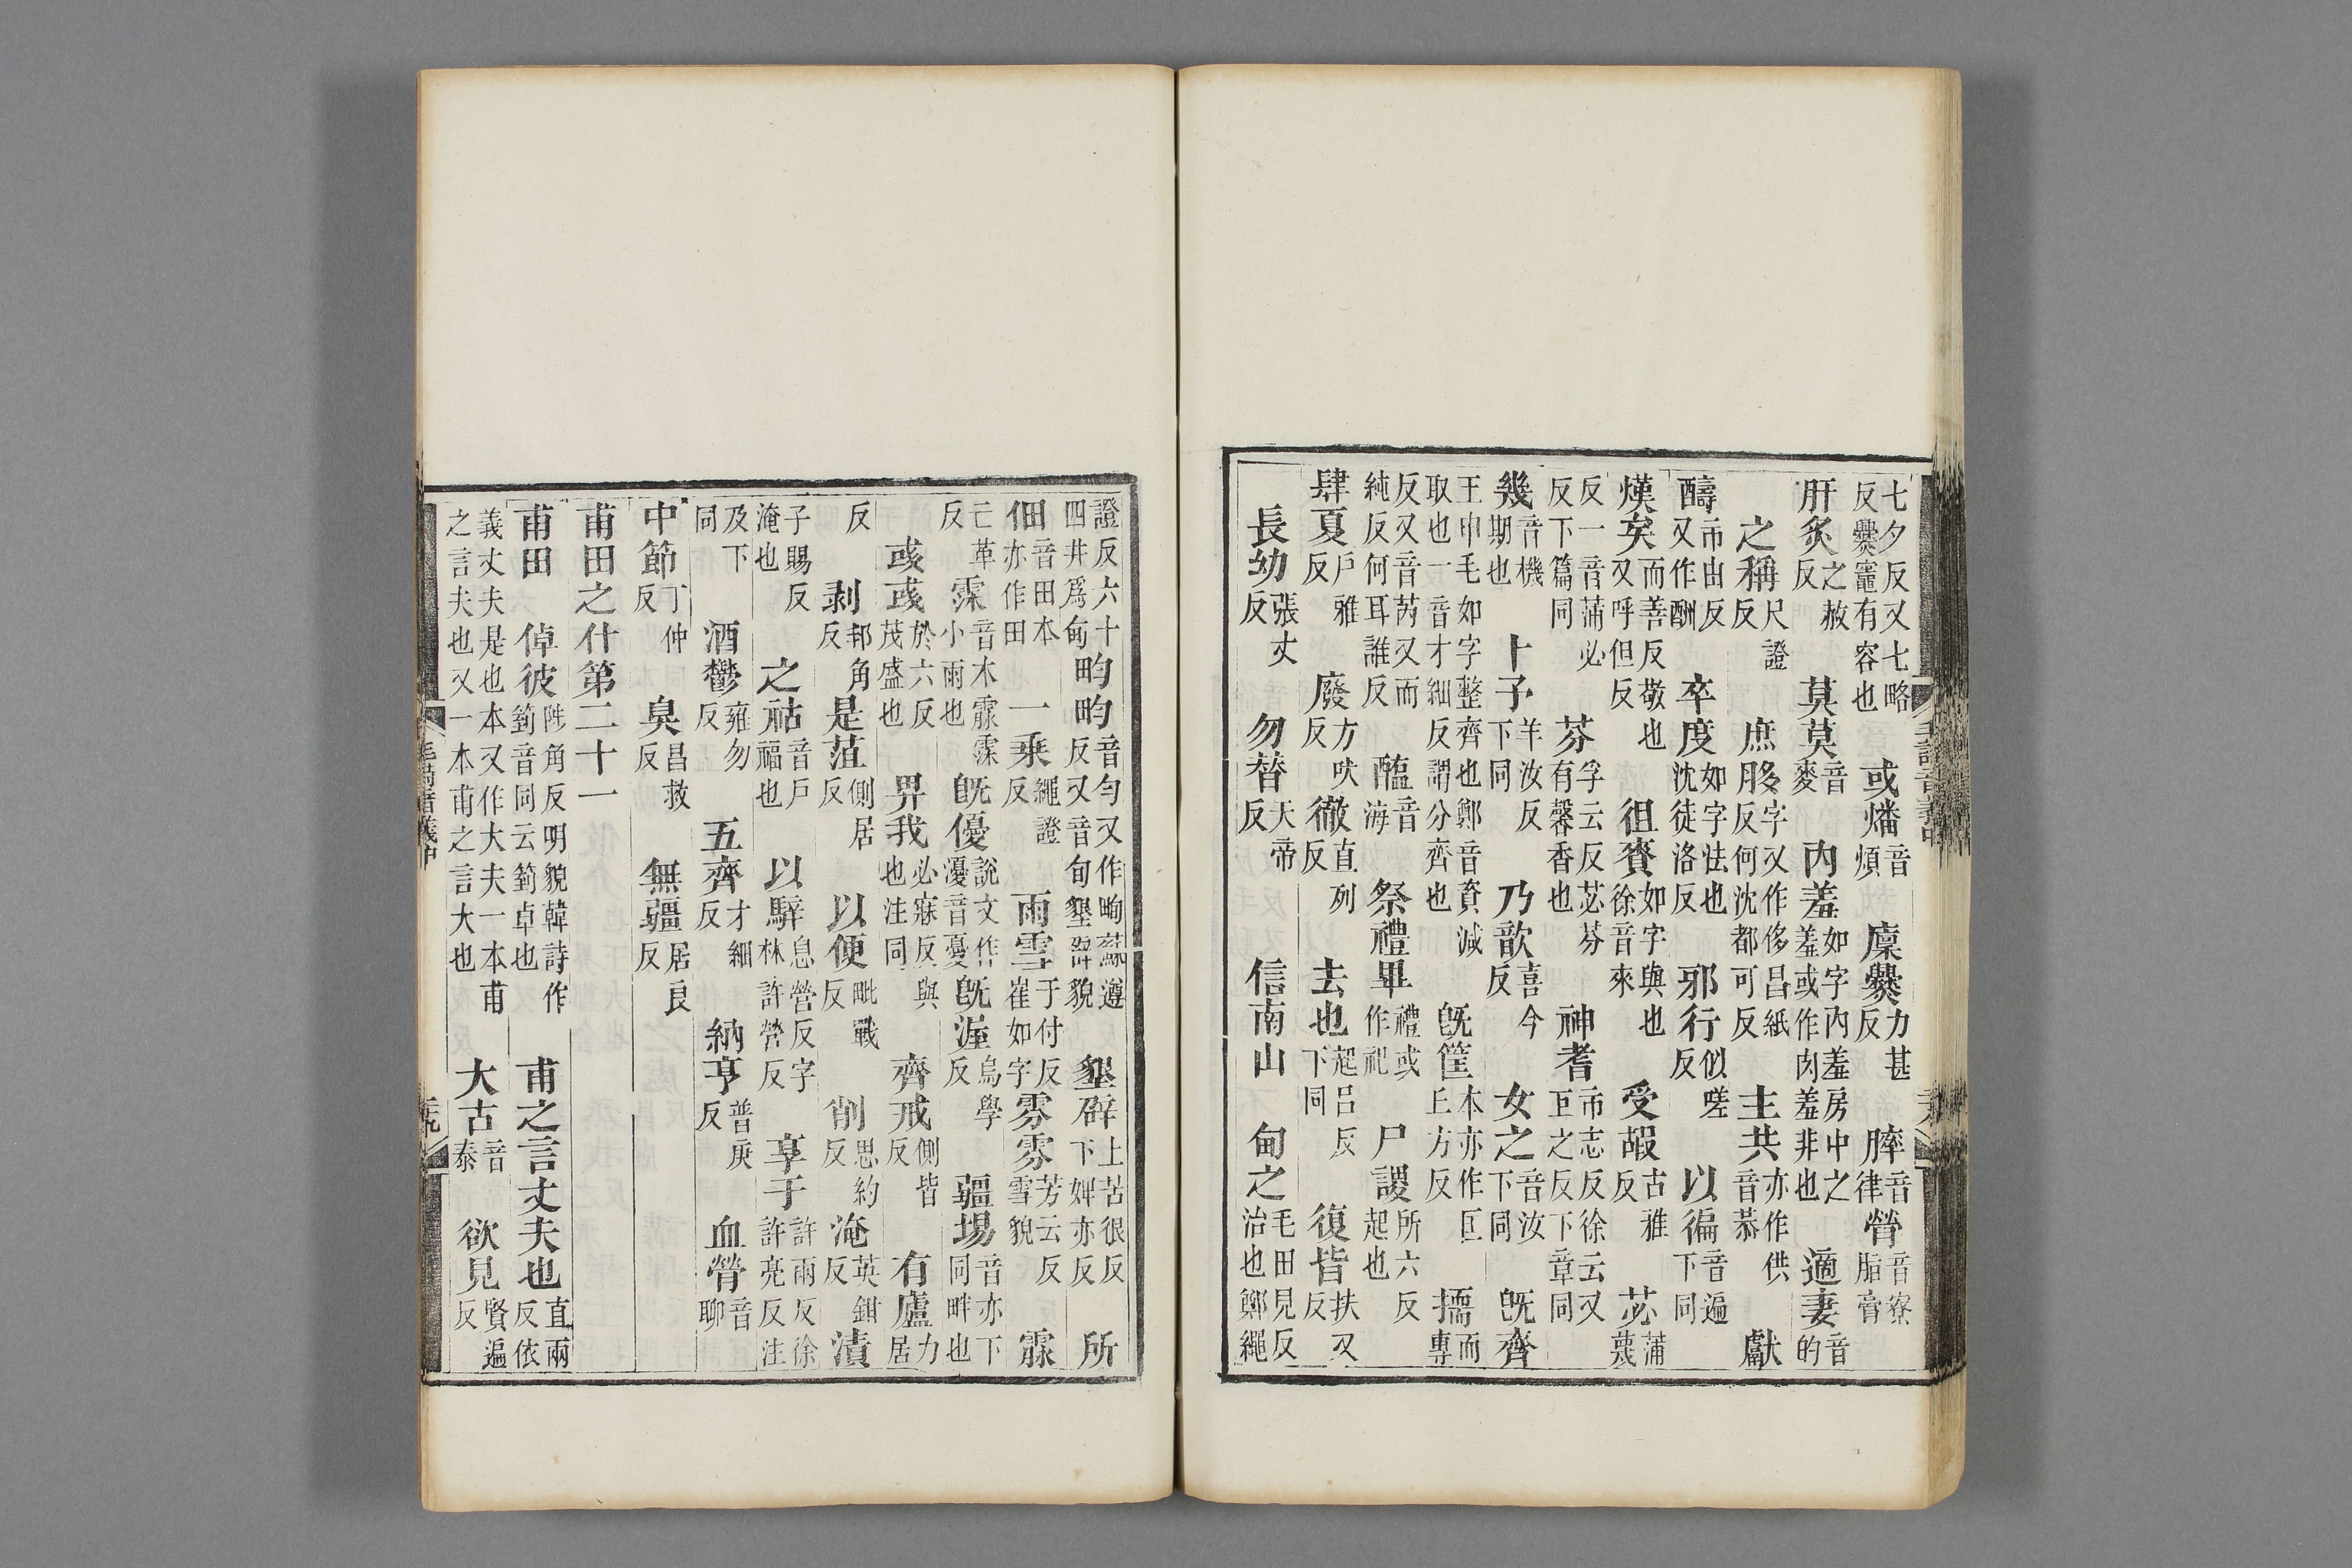 七夕反又七略反爨竈有容也 或燔音煩 廩爨力甚反 膟音律 膋音寮脂膏
肝炙之赦反 莫莫音麥 内羞如字内羞房中之羞或作肉羞非也 適妻音的
之稱尺證反 庶䏧字又作侈昌紙反何沈都可反 主共亦作供音恭 獻
醻市由反又作酬 卒度如字怯也沈徒洛反 邪行似嗟反 以徧音遍下同
熯矣而善反敬也又呼但反 徂賚如字與也徐音來 受嘏古雅反 苾蒲蔑
反一音蒲必反下篇同 芬孚云反苾芬有馨香也 神耆市志反徐云又巨之反下章同
幾音機期也 卜予羊汝反下同 乃歆喜今反 女之音汝下同 既齊
王申毛如字整齊也鄭音資減取也一音才細反謂分齊也 既筐本亦作匡丘方反 擩而專
反又音芮又而純反何耳誰反 醢音海 祭禮畢禮或作祀 尸謖所六反起也
肆夏戶雅反 廢方吠反 徹直列反 去也起呂反下同 復皆扶又反
長幼張丈反 勿替天帝反 信南山 甸之毛田見反治也鄭繩
毛詩音義中
證反六十四井爲甸 畇畇音匀又作㽦蘇遵反又音旬墾辟貌 墾辟上苦很反下婢亦反 所
佃音田本亦作田 一乗繩證反 雨雪于付反崔如字 雰雰芳云反雪貌 霢
亡革反 霂音木霢霂小雨也 既優說文作瀀音憂 既渥烏學反 疆埸音亦下同畔也
彧彧於六反茂盛也 畀我必寐反與也注同 齊戒側皆反 有廬力居
反 剥邦角反 是菹側居反 以便毗戰反 削思約反 淹英鉗反 漬
子賜反淹也 之祜音戶福也 以騂息營反字林許營反 享于許兩反徐許亮反注
及下同 酒鬱雍勿反 五齊才細反 納亨普庚反 血膋音聊
中節丁仲反 臭昌救反 無疆居良反
甫田之什第二十一
甫田 倬彼陟角反明貌韓詩作箌音同云箌卓也 甫之言丈夫也直兩反依
義丈夫是也本又作大夫一本甫之言夫也又一本甫之言大也 大古音泰 欲見賢遍反
毛詩音義中